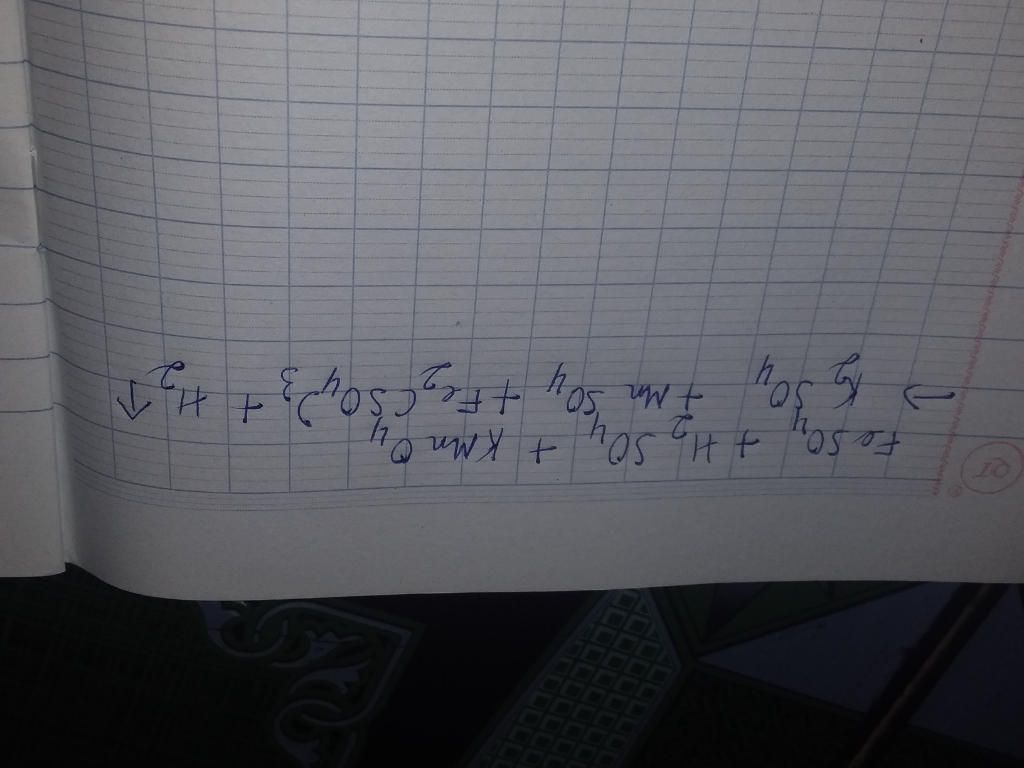 FeSO₄ + H₂SO₄ + KMnO₄
→ K₂SO₄ + MnSO₄ + Fe₂(SO₄)₃ + H₂↑